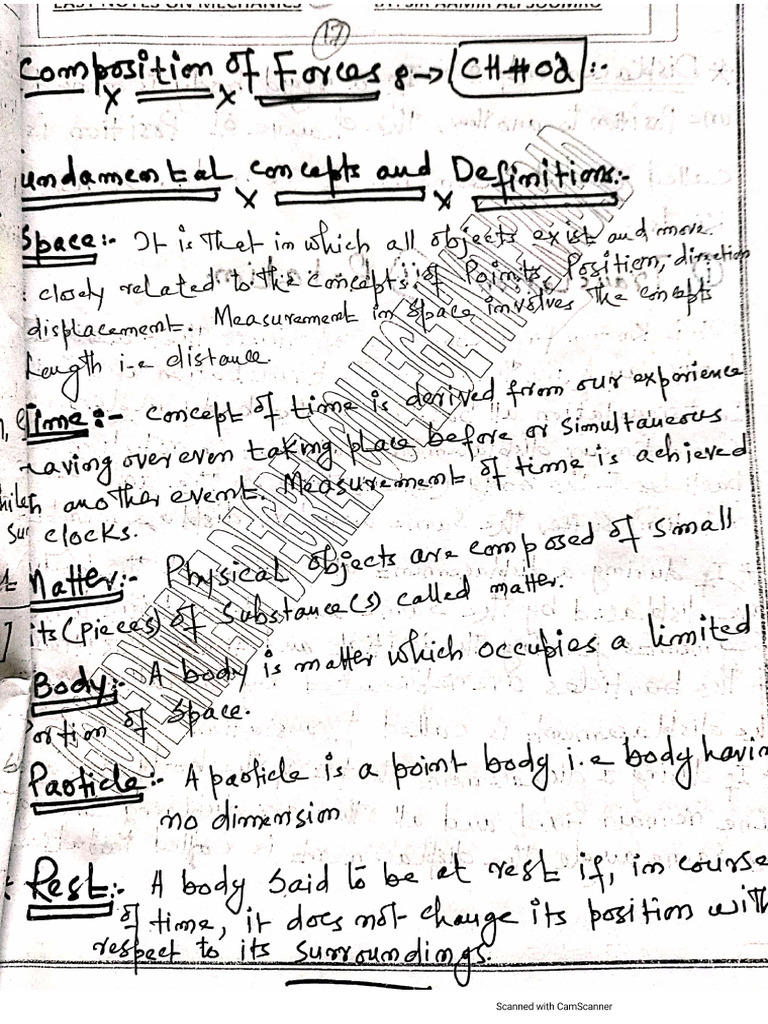 EASY NOTES ON MECHANICS BY: SIR AAMIR ALI SOOMRO
17
Composition of Forces :→ CH#02:-
undamental concepts and Definitions:-
Space:- It is that in which all objects exist and move.
closely related to the concepts of Points, Position, direction
displacement. Measurement in Space involves the concepts
Length i.e distance.
Time:- concept of time is derived from our experience
having over even taking place before or Simultaneous
another event. Measurement of time is achieved
clocks.
Matter:- Physical objects are composed of Small
its (pieces) of Substance(s) called matter.
Body:- A body is matter which occupies a limited
ortion of Space.
Particle:- A particle is a point body i.e body havin
no dimension
Rest:- A body Said to be at rest if, in course
of time, it does not change its position with
respect to its Surroundings.
GOVERNMENT DEGREE COLLEGE
Scanned with CamScanner